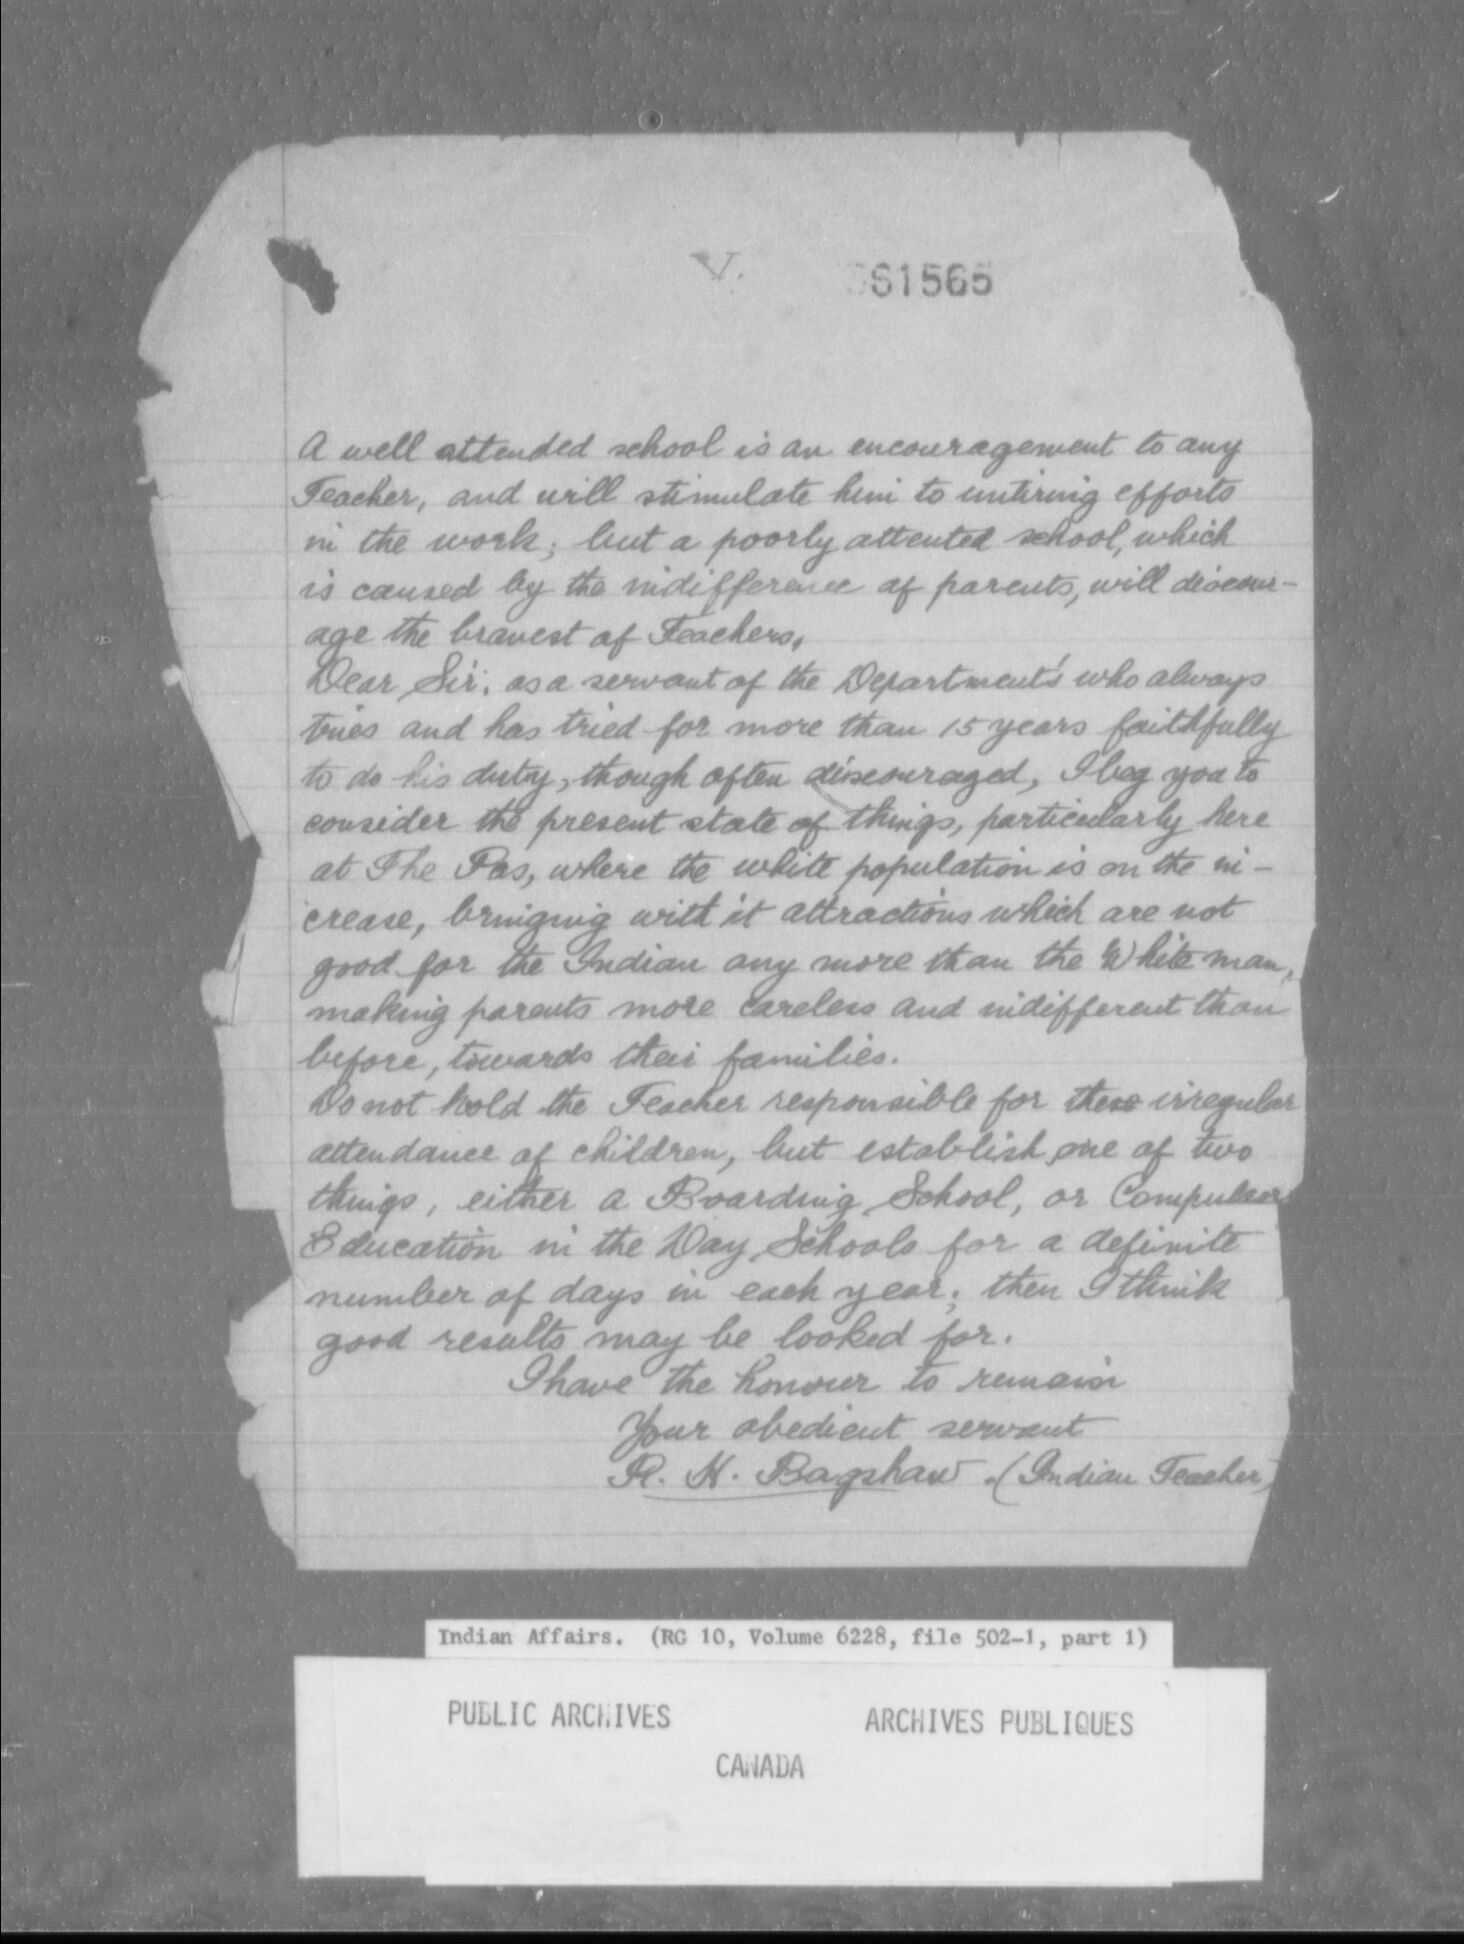 V.
361565
A well attended school is an encouragement to any
Teacher, and will stimulate him to untiring efforts
in the work; but a poorly attented school, which
is caused by the indifference of parents, will discour-
age the bravest of Teachers.
Dear Sir, as a servant of the Department's who always
tries and has tried for more than 15 years faithfully
to do his duty, though often discouraged, I beg you to
consider the present state of things, particularly here
at The Pas, where the white population is on the in-
crease, bringing with it attractions which are not
good for the Indian any more than the White man,
making parents more careless and indifferent than
before, towards their families.
Do not hold the Teacher responsible for these irregular
attendance of children, but establish one of two
things, either a Boarding School, or Compulsory
Education in the Day Schools for a definite
number of days in each year; then I think
good results may be looked for.
I have the honour to remain
Your obedient servant
R. H. Bagshaw. (Indian Teacher)
Indian Affairs. (RG 10, Volume 6228, file 502-1, part 1)
PUBLIC ARCHIVES ARCHIVES PUBLIQUES
CANADA